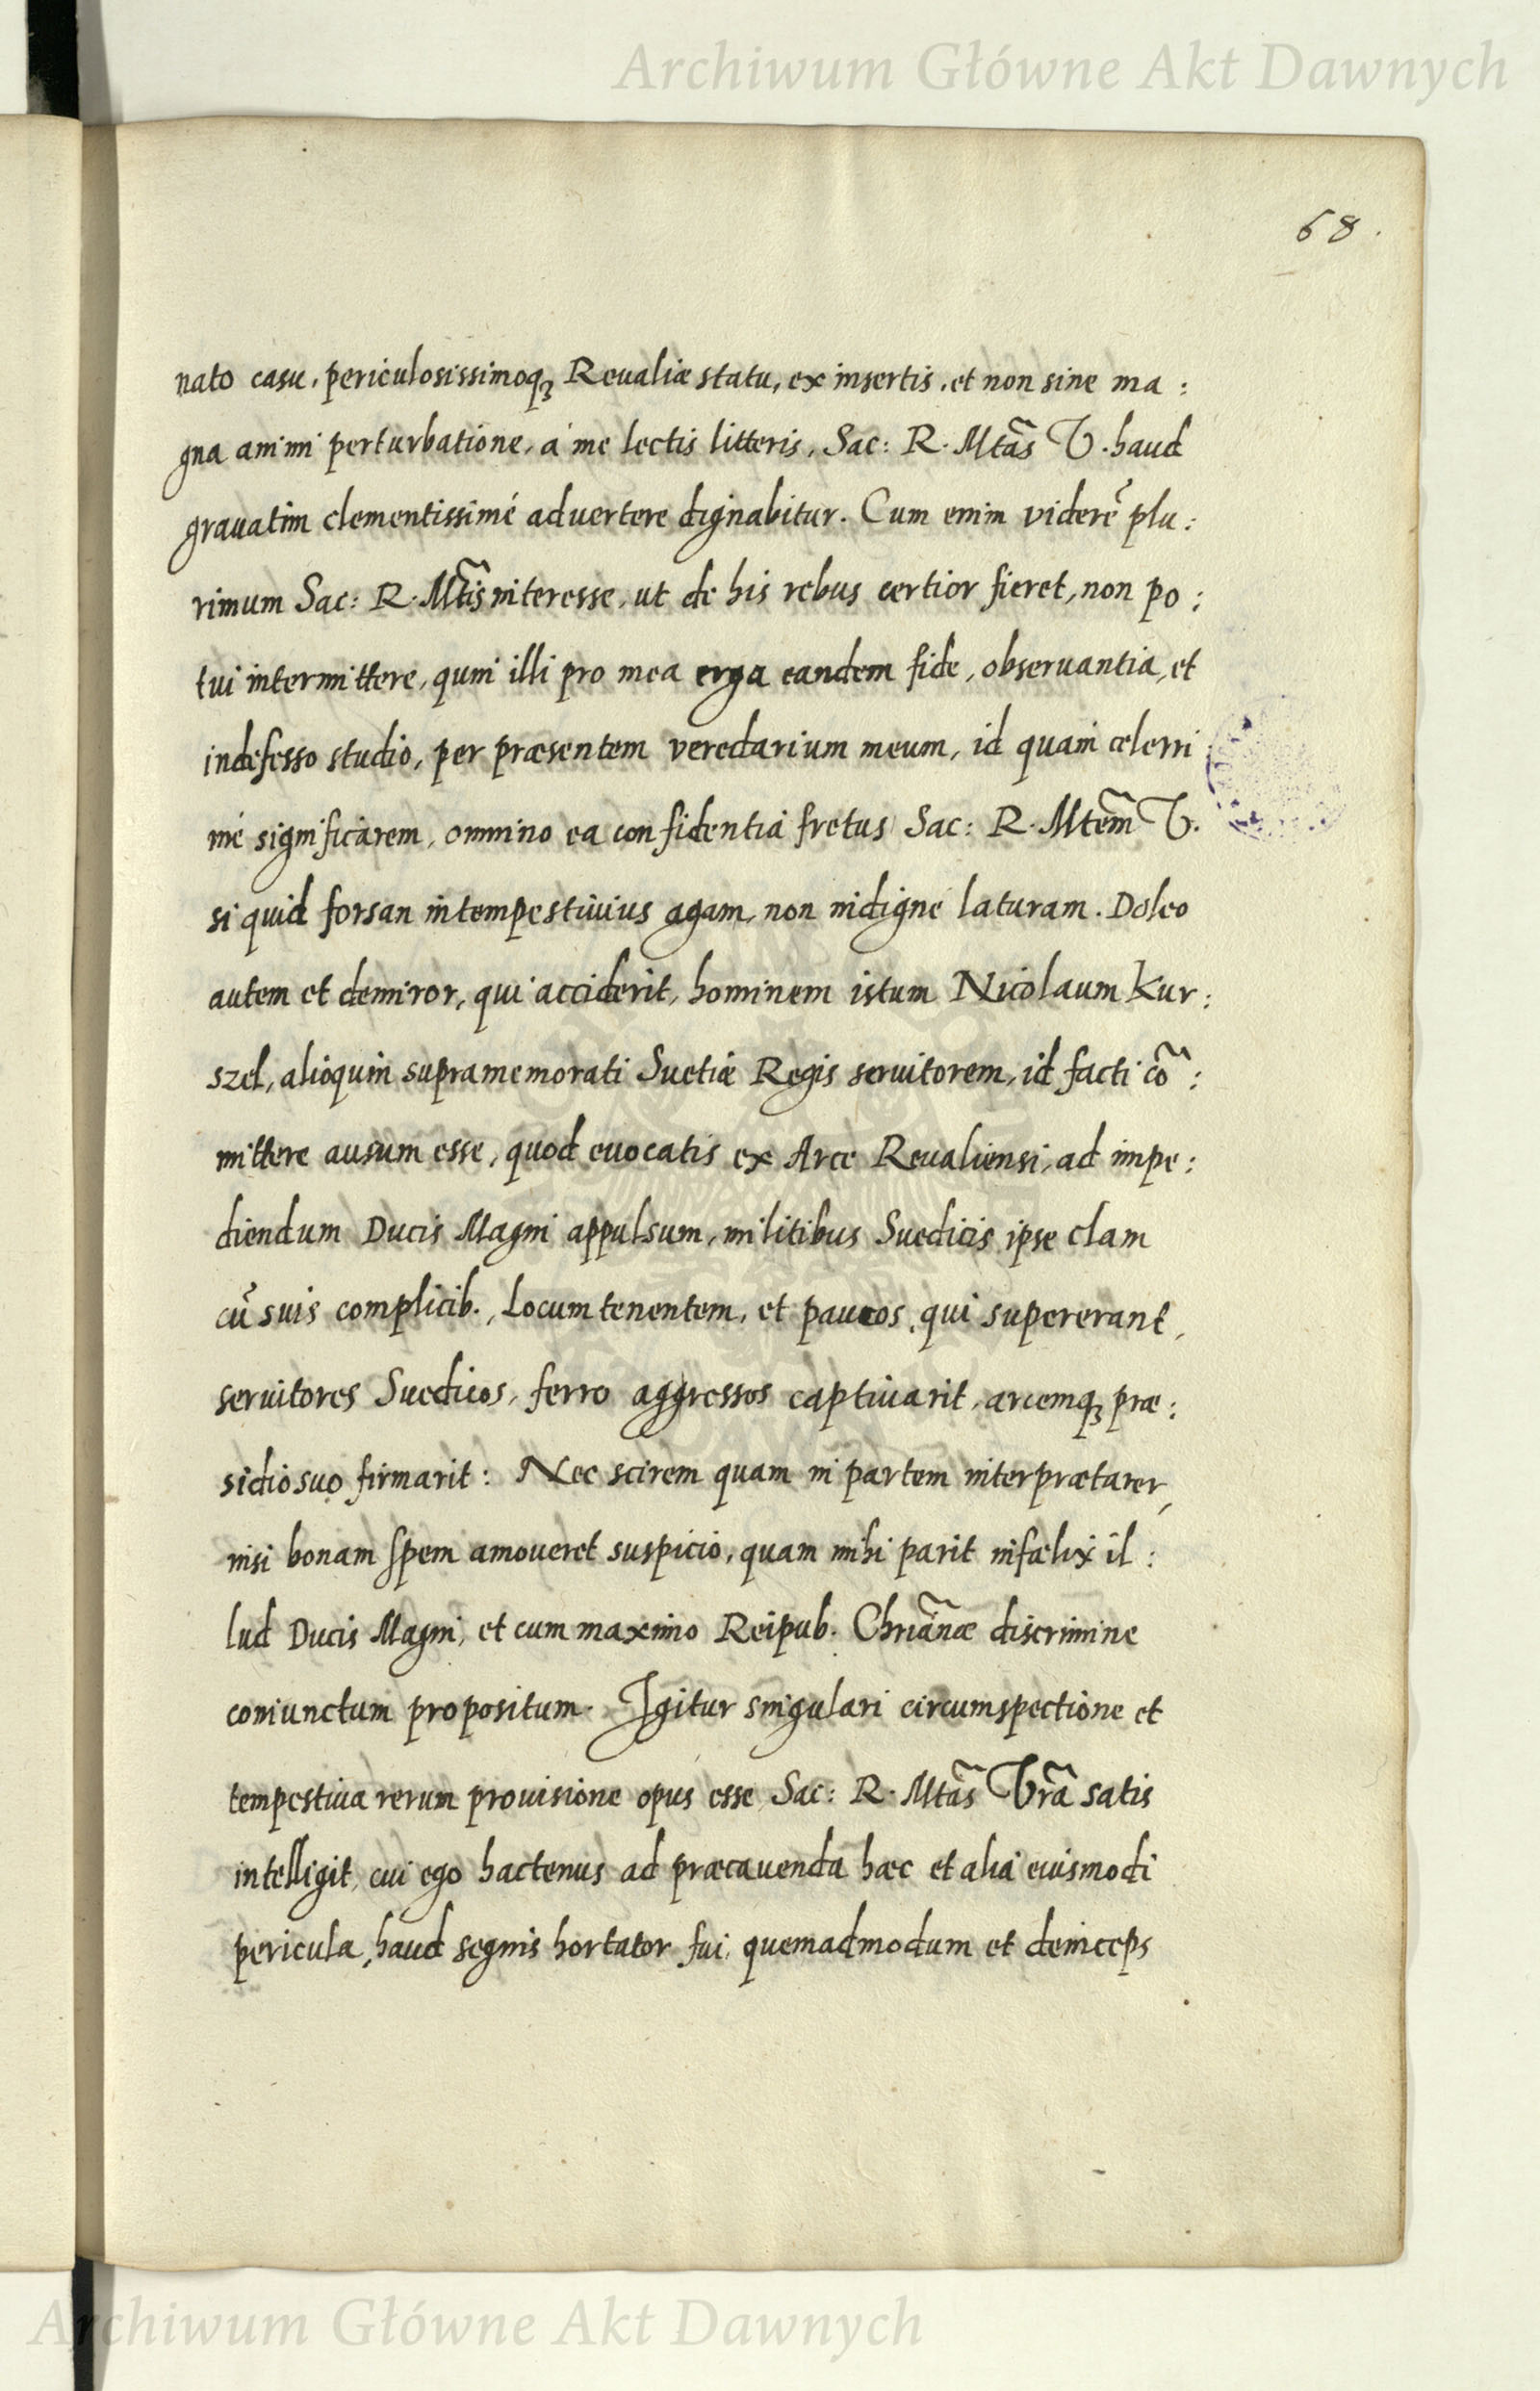 Archiwum Główne Akt Dawnych
68.
nato casu, periculosissimoqꝫ Reualiæ statu, ex insertis, et non sine ma:
gna animi perturbatione, á me lectis litteris, Sac: R. Mtãs V. haud
grauatim clementissimé aduertere dignabitur. Cum enim viderẽ plu:
rimum Sac: R. Mt̃is interesse, ut de his rebus certior fieret, non po:
tui intermittere, quin illi pro mea erga eandem fide, obseruantia, et
indefesso studio, per præsentem veredarium meum, id quam celerri
mé significarem, omnino ea confidentia fretus Sac: R. Mtem̃ V.
si quid forsan intempestiuius agam, non indigne laturam. Doleo
autem et demiror, qui acciderit, hominem istum Nicolaum Kur:
szel, alioquin supramemorati Suetiæ Regis seruitorem, id facti cõ:
mittere ausum esse, quod euocatis ex Arce Reualiensi, ad impe:
diendum Ducis Magni appulsum, militibus Suedicis ipse clam
cũ suis complicib., Locum tenentem, et paucos, qui supererant,
seruitores Suedicos, ferro aggressos captiuarit, arcemqꝫ præ:
sidio suo firmarit: Nec scirem quam in partem interprætarer,
nisi bonam spem amoueret suspicio, quam mihi parit infælix il:
lud Ducis Magni, et cum maximo Reipub. Chriãnæ discrimine
coniunctum propositum. Igitur singulari circumspectione et
tempestiua rerum prouisione opus esse Sac: R. Mtãs Vrã satis
intelligit, cui ego hactenus ad præcauenda hæc et alia eiusmodi
pericula, haud segnis hortator fui, quemadmodum et deinceps
Archiwum Główne Akt Dawnych